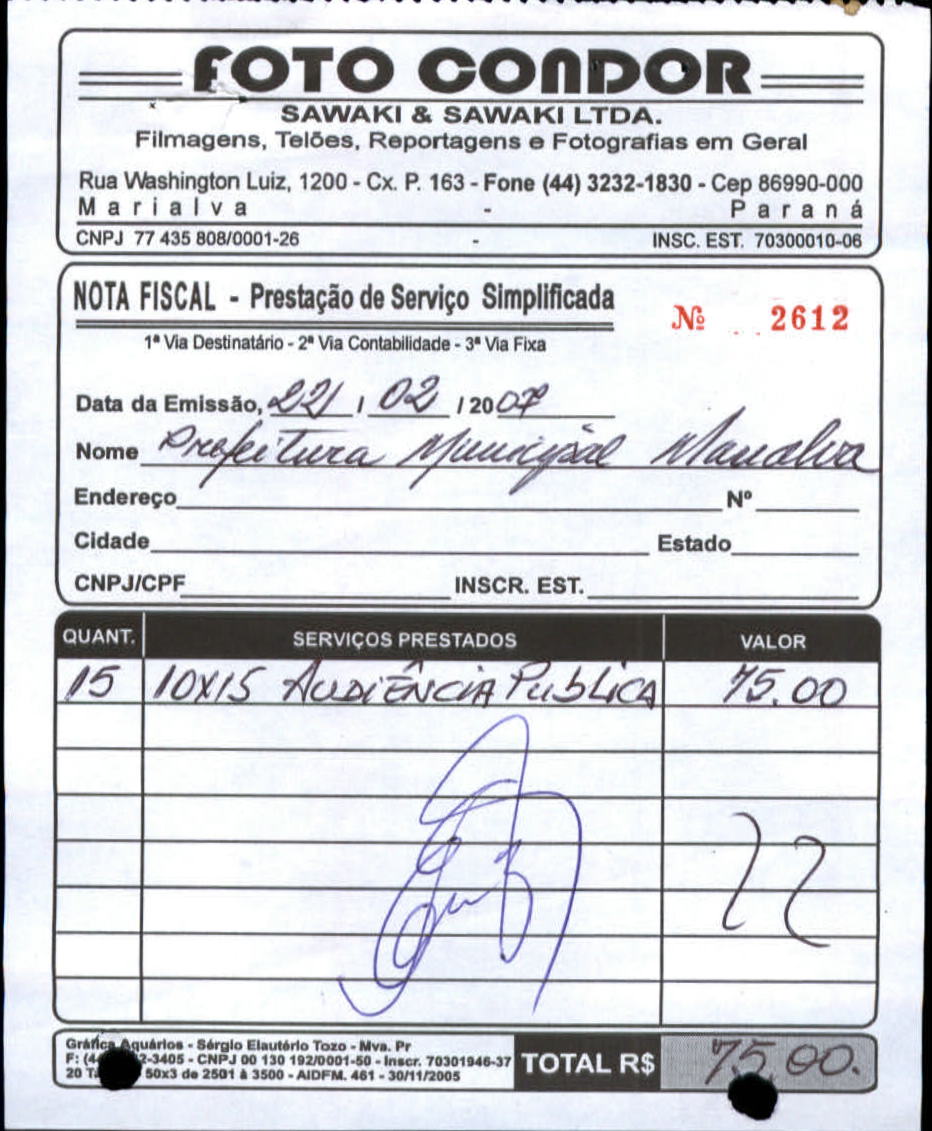 FOTO CONDOR
SAWAKI & SAWAKI LTDA.
Filmagens, Telões, Reportagens e Fotografias em Geral
Rua Washington Luiz, 1200 - Cx. P. 163 - Fone (44) 3232-1830 - Cep 86990-000
Marialva - Paraná
CNPJ 77 435 808/0001-26 - INSC. EST. 70300010-06
NOTA FISCAL - Prestação de Serviço Simplificada
Nº 2612
1ª Via Destinatário - 2ª Via Contabilidade - 3ª Via Fixa
Data da Emissão, 22 / 02 / 2007
Nome Prefeitura Municipal Marialva
Endereço Nº
Cidade Estado
CNPJ/CPF INSCR. EST.
QUANT. SERVIÇOS PRESTADOS VALOR
15 10X15 AUDIÊNCIA PUBLICA 75.00
Gráfica Aquários - Sérgio Elautério Tozo - Mva. Pr
F: 2-3405 - CNPJ 00 130 192/0001-50 - Inscr. 70301946-37
20 50x3 de 2501 à 3500 - AIDFM. 461 - 30/11/2005
TOTAL R$ 75.00.